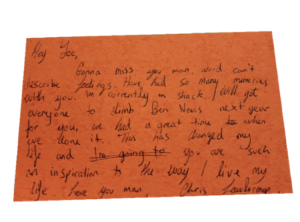 Hey Joe,
Gonna miss you man, word can't
describe feelings. Have had so many memories
with you. Im currently in shock. I will get
everyone to climb Ben Nevis next year
for you, we had a great time when
we done it. This has changed my
life and I'm going to you are such
an inspiration to the way I live my
life love you man. Chris